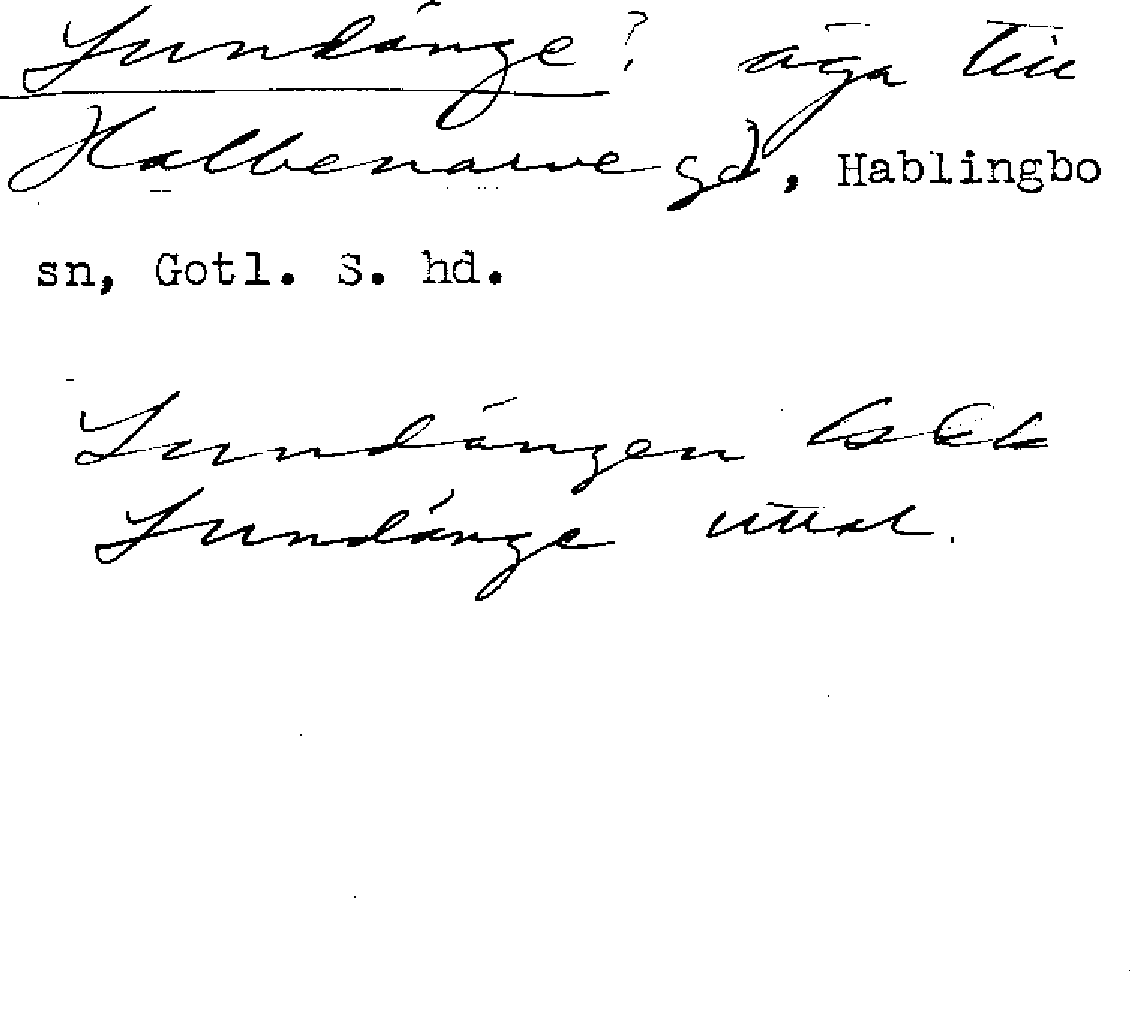 Lundänge? äga till
Halbenarve gd, Hablingbo
sn, Gotl. S. hd.
Lundängen
Lundänge uttal.